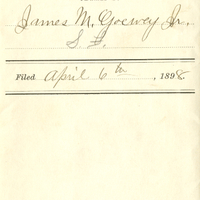 James M. Goewey Jr.
S. F.
Filed April 6th, 1898